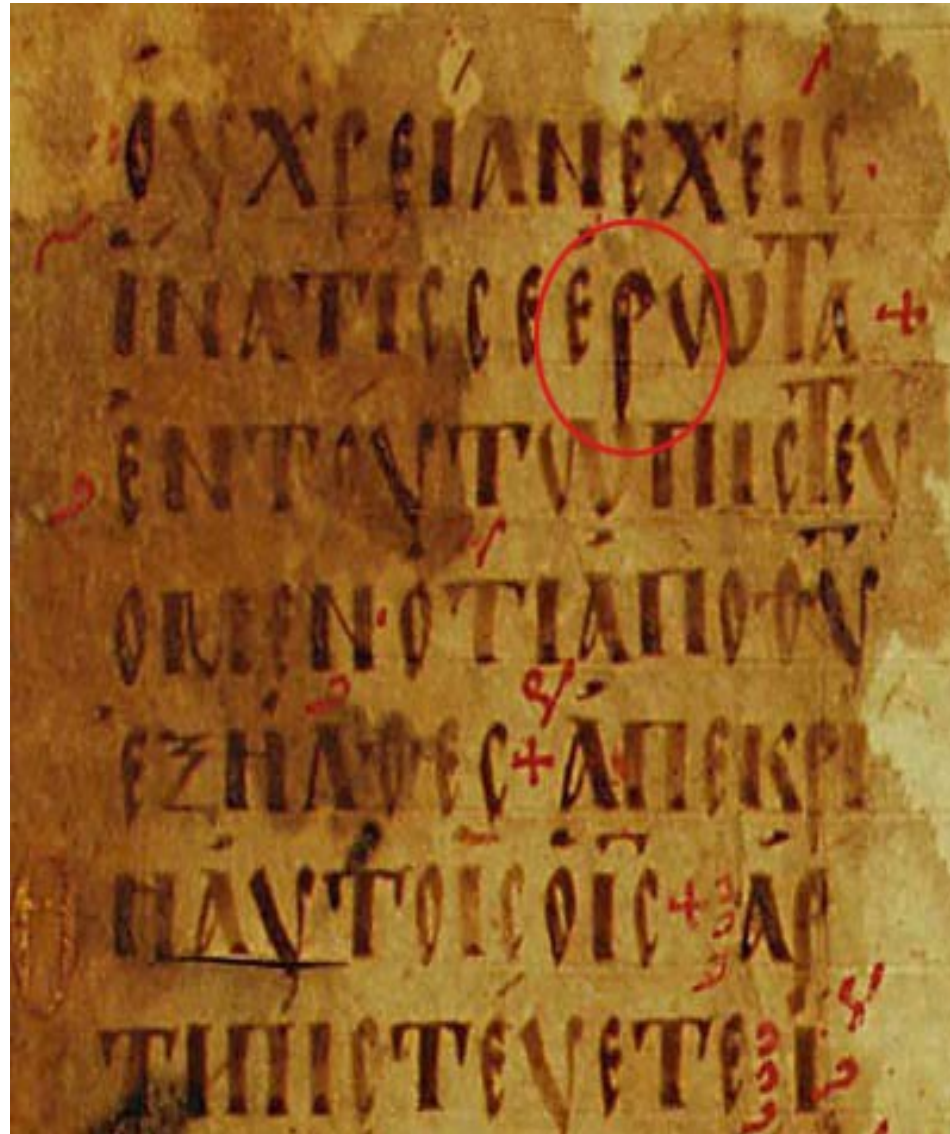 ΟΥΧΡΕΙΑΝΕΧΕΙΣ
ΙΝΑΤΙΣΣΕΕΡΩΤΑ
ΕΝΤΟΥΤΩΠΙΣΤΕΥ
ΟΜΕΝΟΤΙΑΠΟΘΥ
ΕΞΗΛΘΕΣ ΑΠΕΚΡΙ
ΗΑΥΤΟΙΣΟΙΣ ΑΡ
ΤΙΠΙΣΤΕΥΕΤΕΙ